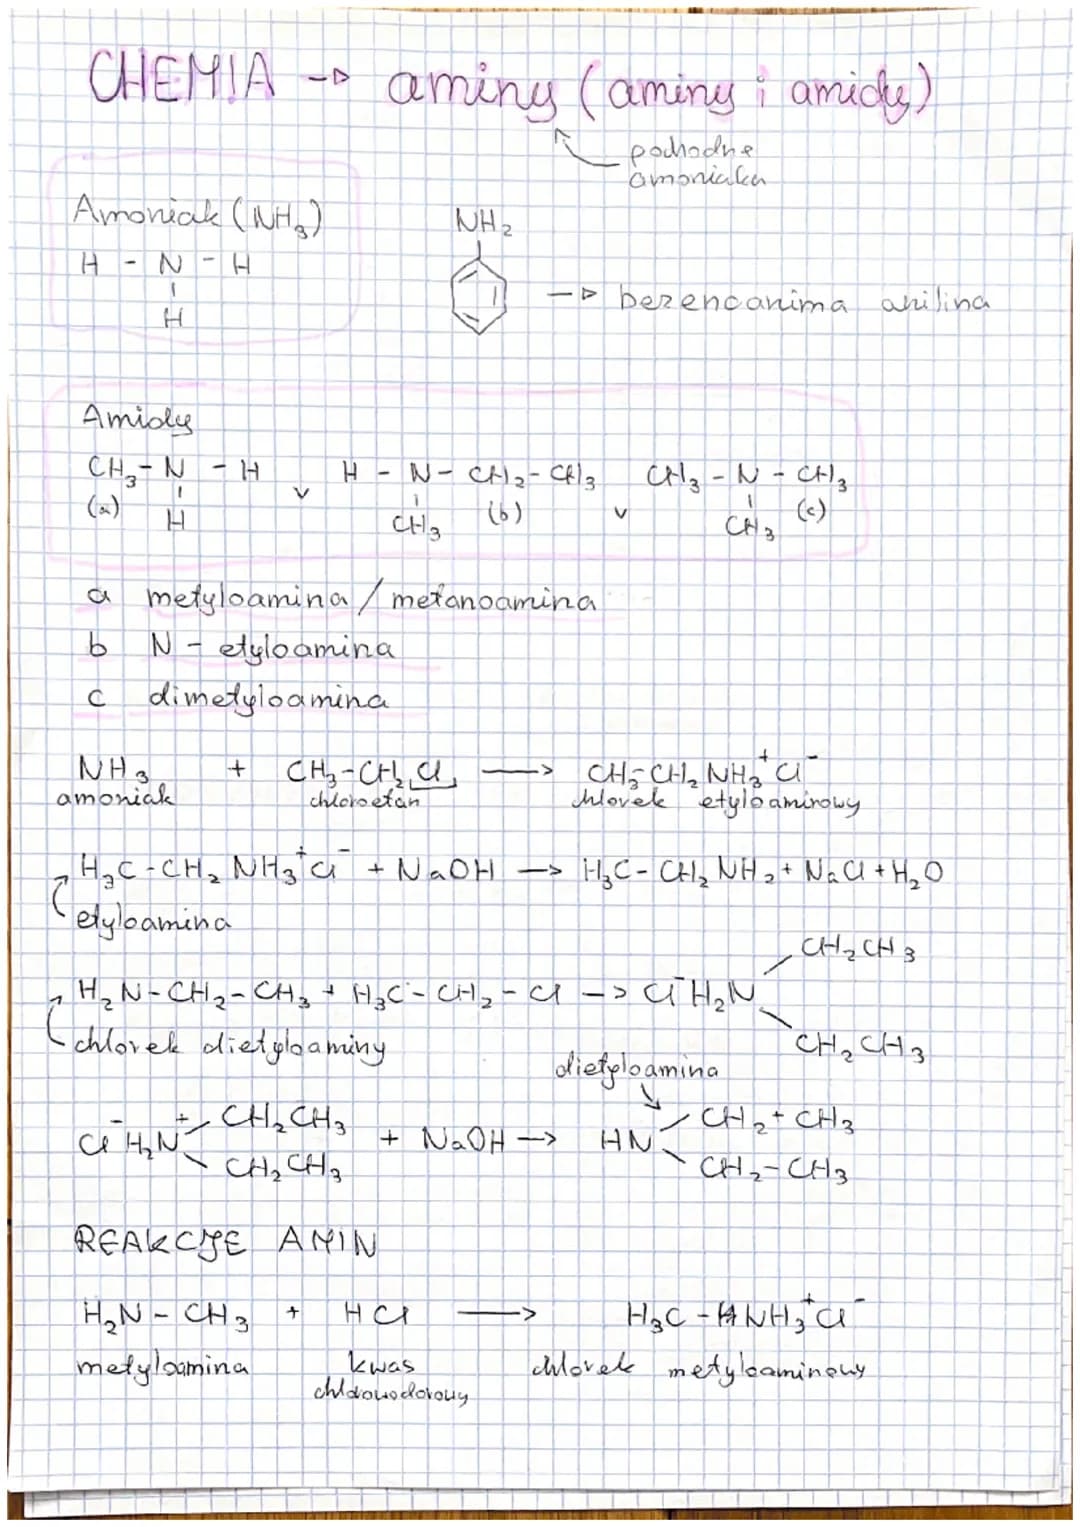 CHEMIA -▷ aminy (aminy i amidy)
pochodne
amoniaku
Amoniak (NH₃)
H - N - H
H
NH₂
-▷ bezencanima anilina
Amidy
CH₃ - N - H , H - N - CH₂ - CH₃ , CH₃ - N - CH₃
(a) H CH₃ (b) CH₃ (c)
a metyloamina / metanoamina
b N - etyloamina
c dimetyloamina
NH₃ + CH₃-CH₂Cl —> CH₃-CH₂NH₃⁺Cl⁻
amoniak chloroetan chlorek etyloaminowy
H₃C-CH₂NH₃⁺Cl⁻ + NaOH —> H₃C-CH₂NH₂ + NaCl + H₂O
etyloamina
CH₂CH₃
H₂N-CH₂-CH₃ + H₃C-CH₂-Cl -> Cl⁻H₂N
CH₂CH₃
chlorek dietyloaminy
dietyloamina
CH₂CH₃ CH₂+CH₃
Cl⁻H₂N⁺ + NaOH -> HN
CH₂CH₃ CH₂-CH₃
REAKCJE AMIN
H₂N - CH₃ + HCl —> H₃C - NH₃⁺Cl⁻
metyloamina kwas chlorek metyloaminowy
chlorowodorowy